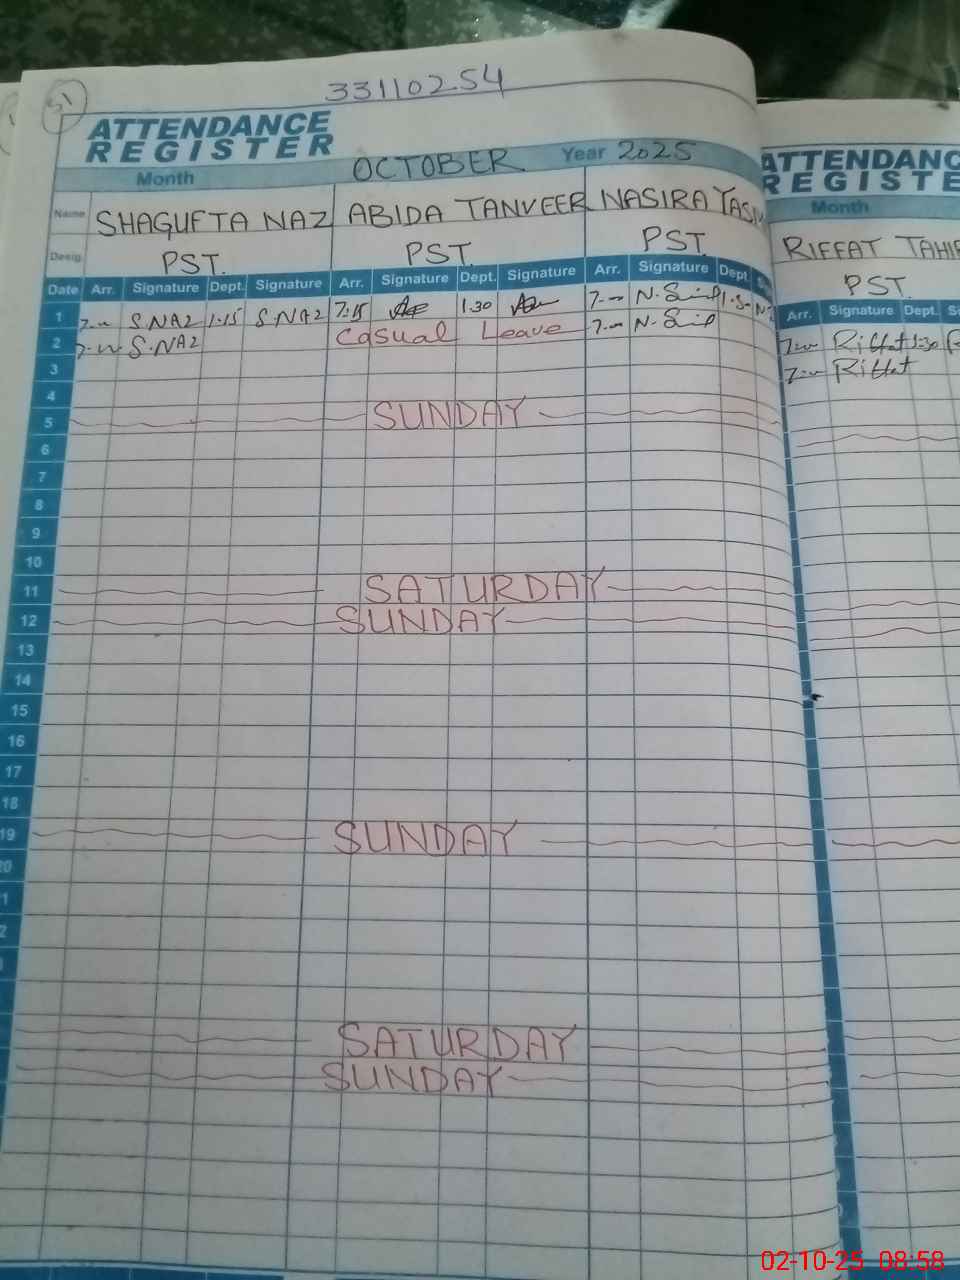 51
33110254
ATTENDANCE
REGISTER
Month OCTOBER Year 2025
Name SHAGUFTA NAZ ABIDA TANVEER NASIRA
Desig. PST. PST. PST.
Date Arr. Signature Dept. Signature Arr. Signature Dept. Signature Arr. Signature Dept.
1 S.NAZ 1.15 S.NAZ 7:15 1.30
2 S.NAZ Casual Leave
3
4
5 SUNDAY
6
7
8
9
10
11 SATURDAY
12 SUNDAY
13
14
15
16
17
18
19 SUNDAY
SATURDAY
SUNDAY
ATTENDANC
REGISTE
Month
RIFFAT TAHIR
PST
Arr. Signature Dept.
Riffat 1.30
Riffat
02-10-25 08:58